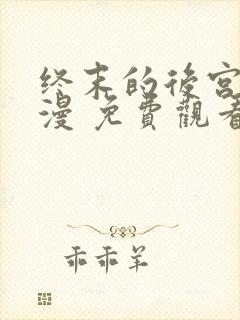 终末的後宮
漫 免費觀看
乖乖羊